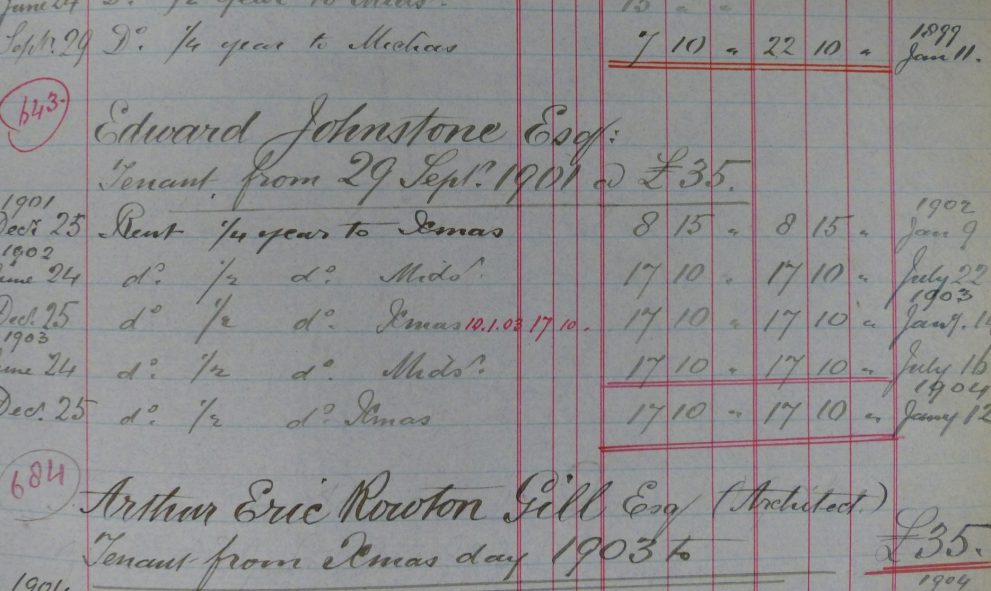 June 24 Do. 1/2 year to Mids. 15 " "
Sept. 29 Do. 1/4 year to Michas 7 10 " 22 10 " 1899 Jan 11.
643.
Edward Johnstone Esq:
Tenant from 29 Sept. 1901 @ £35.
1901 1902
Decr. 25 Rent 1/4 year to Xmas 8 15 " 8 15 " Jan 9
1902
June 24 do. 1/2 do. Mids. 17 10 " 17 10 " July 22
1903
Dec. 25 do 1/2 do. Xmas 10.1.03 17 10 . 17 10 " 17 10 " Jany. 14
1903
June 24 do. 1/2 do. Mids. 17 10 " 17 10 " July 16
1904
Decr. 25 do 1/2 do. Xmas 17 10 " 17 10 " Jany 12
684
Arthur Eric Rowton Gill Esq (Architect.)
Tenant from Xmas day 1903 to £35.
1904 1904